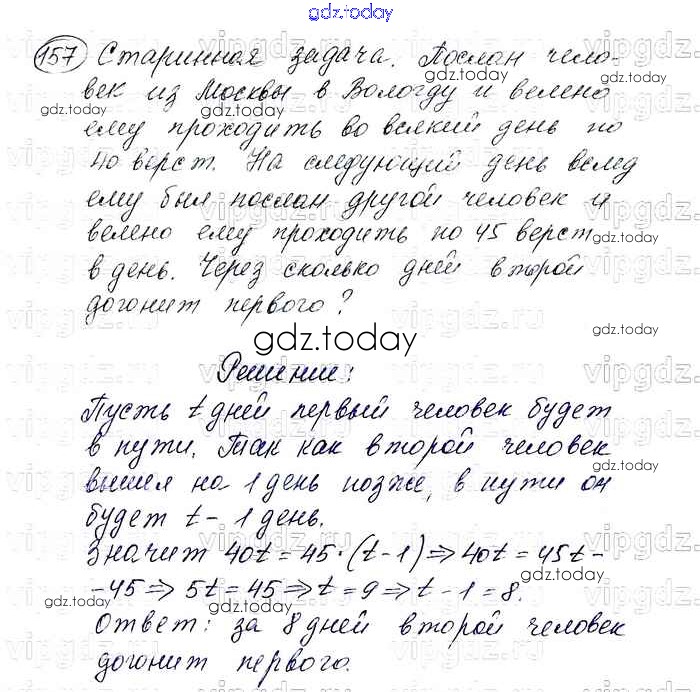 gdz.today
157 Старинная задача. Послан чело-
gdz.today
век из Москвы в Вологду и велено
gdz.today
ему проходить во всякий день по
40 верст. На следующий день вслед
gdz.today
ему был послан другой человек и
велено ему проходить по 45 верст
gdz.today
в день. Через сколько дней второй
догонит первого?
gdz.today
gdz.today
Решение:
gdz.today
Пусть t дней первый человек будет
в пути. Так как второй человек
gdz.today
вышел на 1 день позже, в пути он
будет t - 1 день.
Значит 40t = 45·(t-1) ⇒ 40t = 45t-
gdz.today
-45 ⇒ 5t = 45 ⇒ t = 9 ⇒ t - 1 = 8.
gdz.today
Ответ: за 8 дней второй человек
догонит первого.
gdz.today